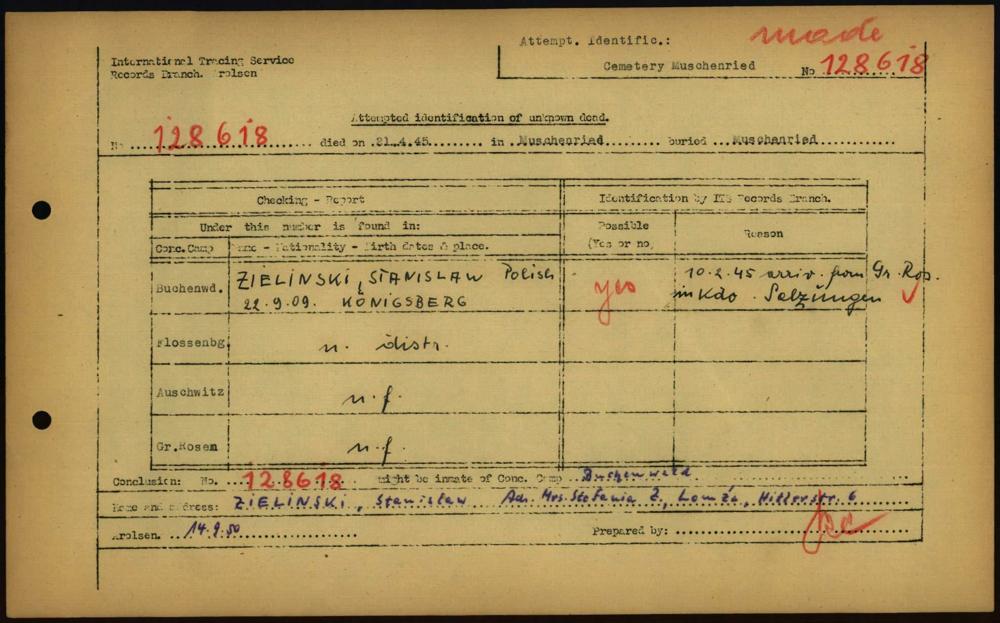 Attempt. Identific.: made
International Tracing Service
Records Branch. Arolsen
Cemetery Muschenried No 128618
Attempted identification of unknown dead.
No 128618 died on 21.4.45. in Muschenried buried Muschenried
Checking - Report Identification by ITS Records Branch.
Under this number is found in: Possible (Yes or no) Reason
Conc.Camp Name - Nationality - Birth dates & place.
Buchenwd. ZIELINSKI, STANISLAW Polish yes 10.2.45 arriv. from Gr. Ros.
22.9.09. KÖNIGSBERG in Kdo. Salzungen
Flossenbg. n. distr.
Auschwitz n.f.
Gr.Rosen n.f.
Conclusion: No. 128618 might be inmate of Conc. Camp Buchenwald
Name and address: ZIELINSKI, Stanislaw Adr. Mrs. Stefania Z., Lomża, Hitlerstr. 6
Arolsen. 14.9.50 Prepared by: